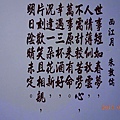 西江月 朱敦儒
世事短如春夢，
人情薄似秋雲。
不須計較苦勞心，
萬事原來有命。
幸遇三杯酒好，
況逢一朵花新。
片刻歡笑且相親，
明日陰晴未定。